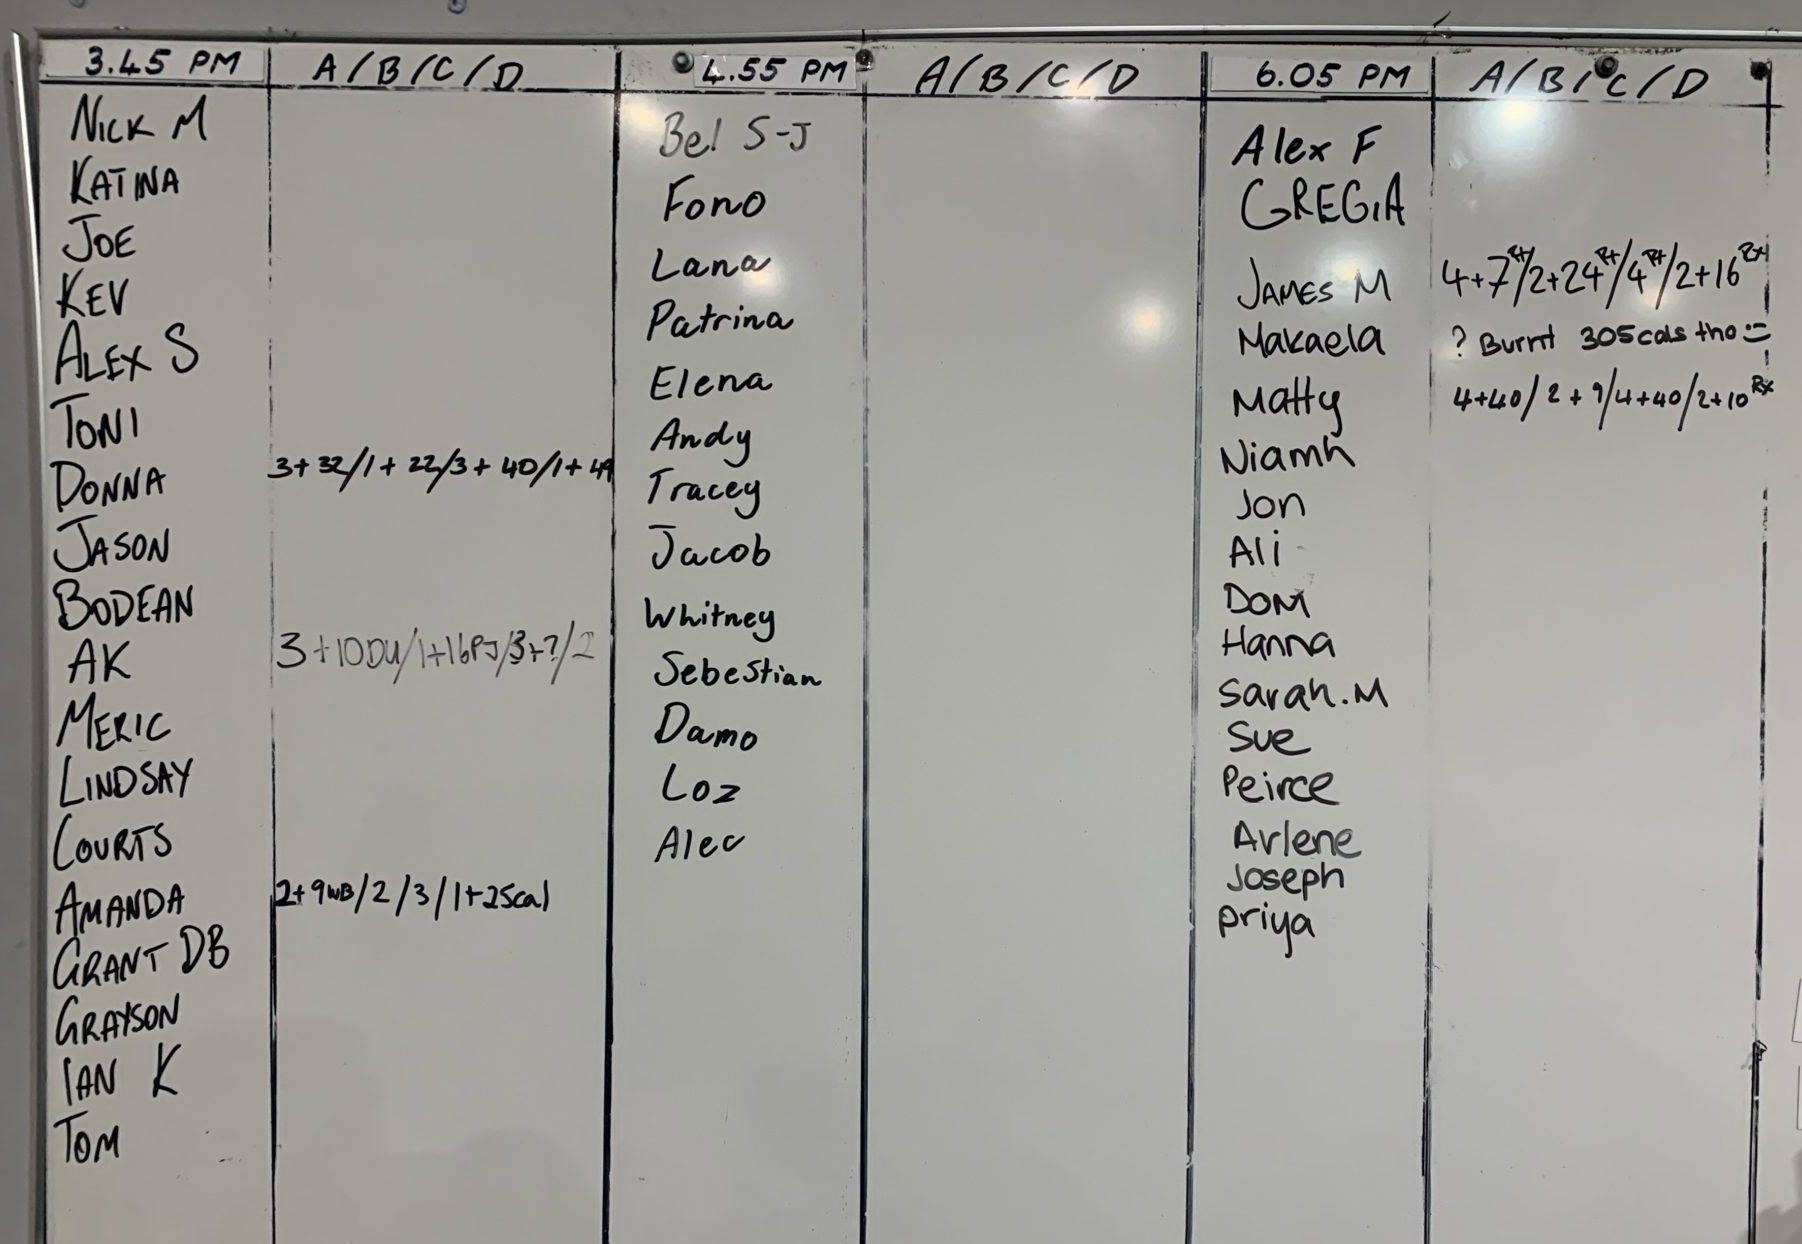 3.45 PM
A/B/C/D
NICK M
KATINA
JOE
KEV
ALEX S
TONI
DONNA 3+32/1+22/3+40/1+49
JASON
BODEAN
AK 3+10DU/1+16PJ/3+?/2
MERIC
LINDSAY
COURTS
AMANDA 2+9WB/2/3/1+25cal
GRANT DB
GRAYSON
IAN K
TOM
4.55 PM
A/B/C/D
Bel S-J
Fono
Lana
Patrina
Elena
Andy
Tracey
Jacob
Whitney
Sebestian
Damo
Loz
Alec
6.05 PM
A/B/C/D
Alex F
GREG.A
JAMES M 4+7/2+24/4/2+16
Makaela ? Burnt 305cals tho
Matty 4+40/2+9/4+40/2+10 Rx
Niamh
Jon
Ali
DOM
Hanna
Sarah.M
Sue
Peirce
Arlene
Joseph
priya